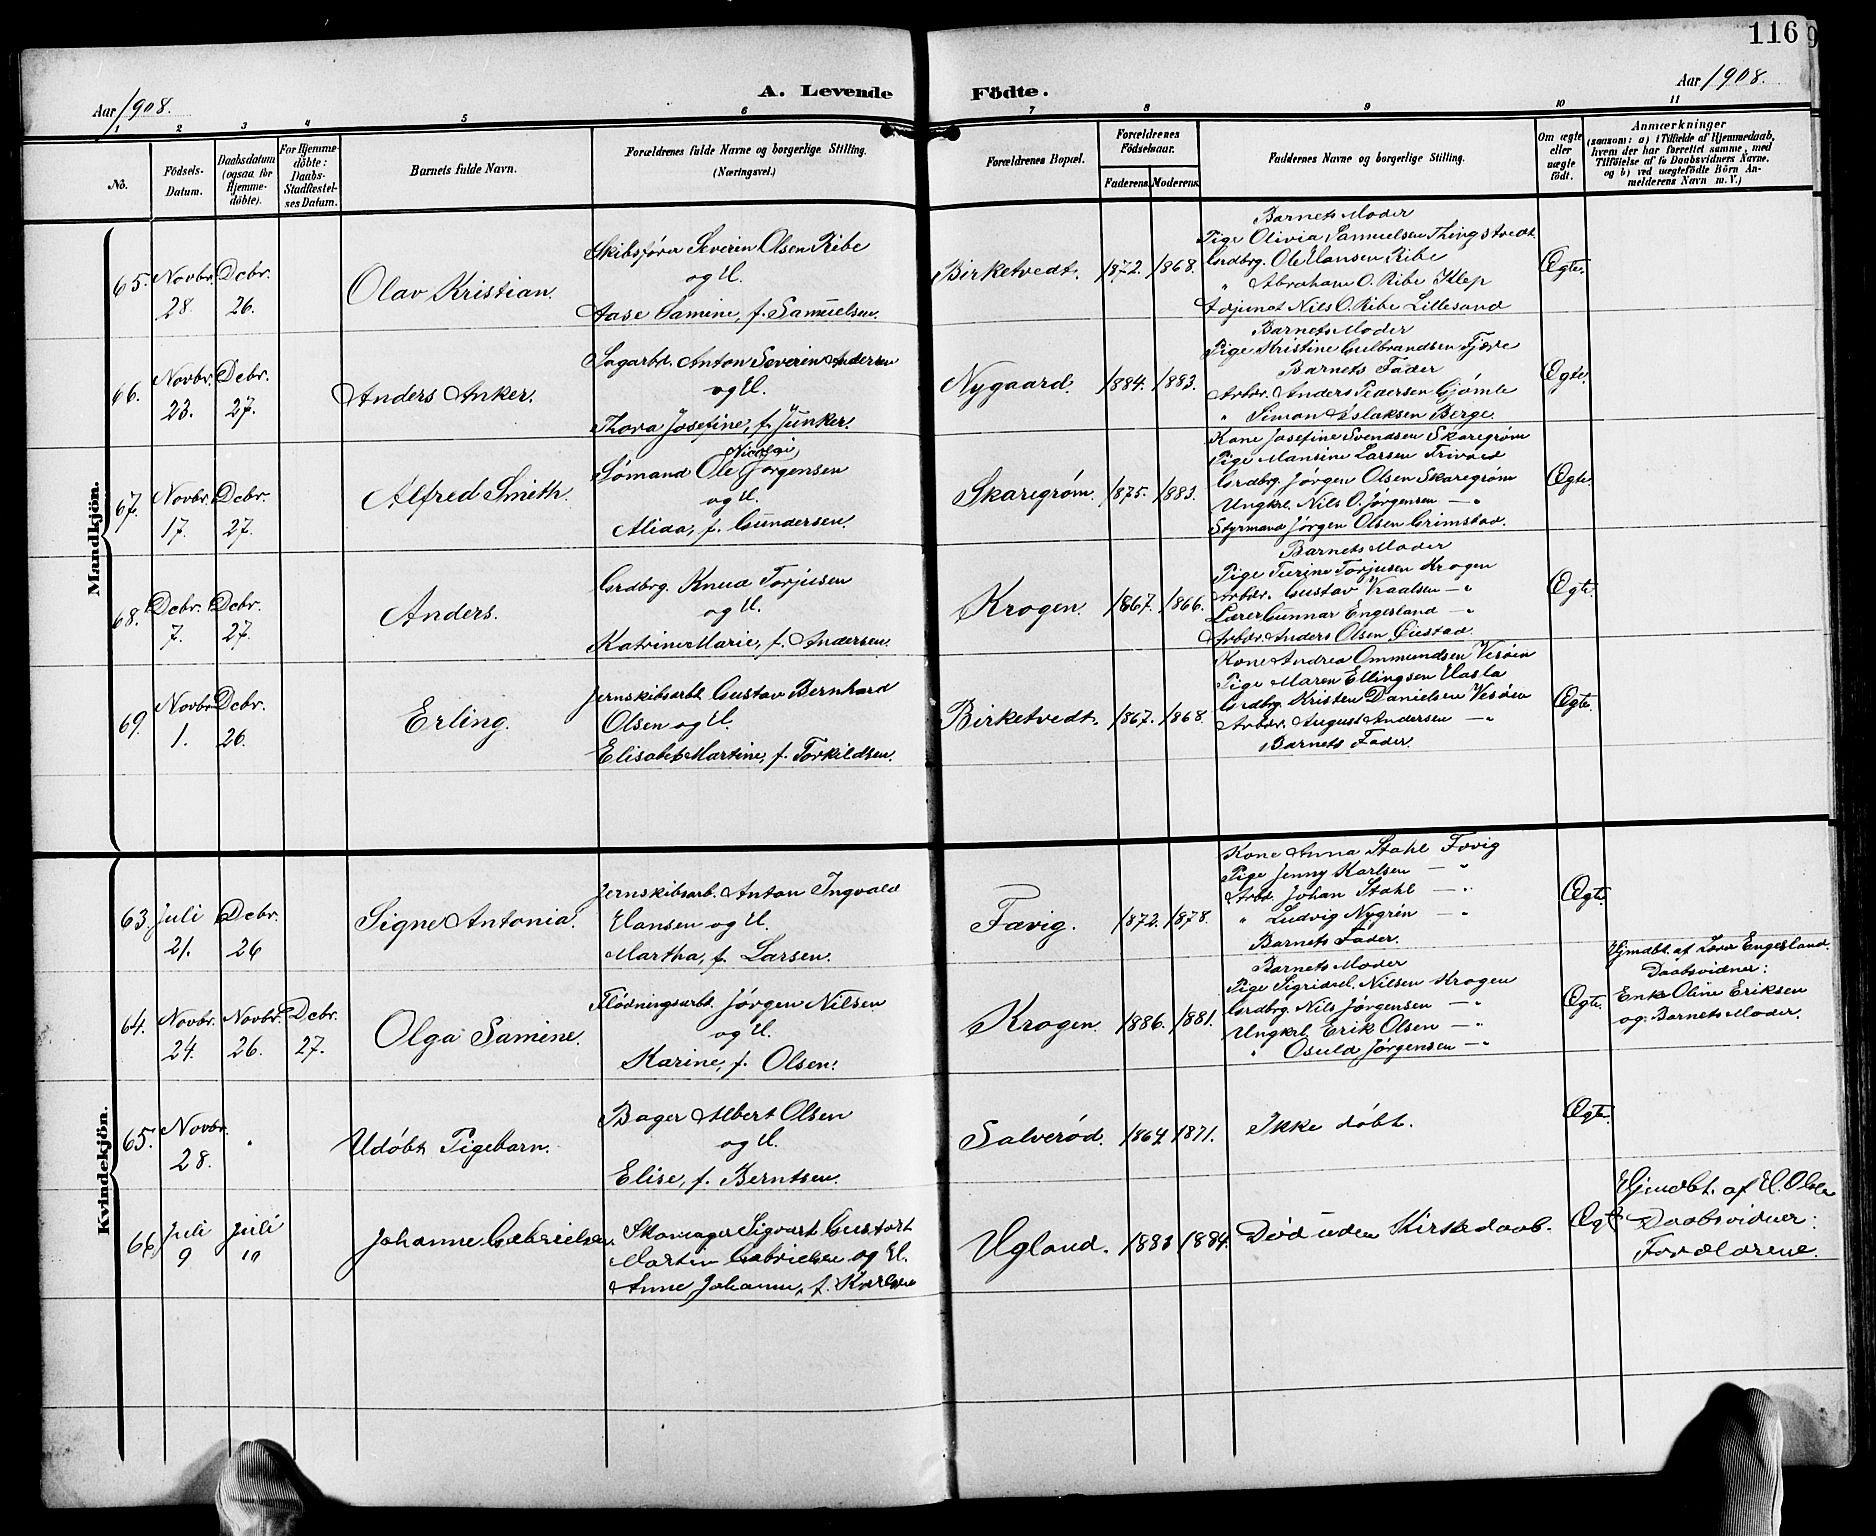 116
Aar 1908.
A. Levende Födte.
Aar 1908.
1 2 3 4 5 6 7 8 9 10 11
No.
Födsels-Datum.
Daabsdatum (ogsaa for Hjemmedöbte).
For Hjemmedöbte: Daabs-Stadfæstelses Datum.
Barnets fulde Navn.
Forældrenes fulde Navne og borgerlige Stilling.
(Næringsvei.)
Forældrenes Bopæl.
Forældrenes Födselsaar.
Faderens. Moderens.
Faddernes Navne og borgerlige Stilling.
Om ægte eller uægte födt.
Anmærkninger
(saasom: a) i Tilfælde af Hjemmedaab,
hvem der har forrettet samme, med
Tilföielse af to Daabsvidners Navne,
og b) ved uægtefödte Börn Anmelderens Navn m. V.)
Mandkjön.
65. Novbr. 28. Dcbr. 26.
Olav Kristian.
Skibsfører Severin Olsen Ribe
og H.
Aase Samine, f. Samuelsen.
Birketvedt. 1872. 1868.
Barnets Moder
Pige Olivia Samuelsen Thingstvedt
Grdbrg. Ole Hansen Ribe
" Abraham O. Ribe Klep
Adjunct Nils O. Ribe Lillesand
Ægte.
66. Novbr. 23. Dcbr. 27.
Anders Anker.
Sagarbr. Anton Severin Andersen
og H.
Thora Josefine, f. Junker.
Nygaard. 1884. 1883.
Barnets Moder
Pige Kristine Gulbrandsen Fjære
Barnets Fader
Arbdr. Anders Pedersen Gjømle
" Simon Aslaksen Berge.
Ægte.
67. Novbr. 17. Dcbr. 27.
Alfred Smith.
Nicolai
Sømand Ole Jørgensen
og H.
Alida, f. Gundersen.
Skaregrøm. 1875. 1883.
Kone Josefine Svendsen Skaregrøm
Pige Mansine Larsen Frivold
Grdbrg. Jørgen Olsen Skaregrøm
Ungkrl. Nils O. Jørgensen — "
Styrmand Jørgen Olsen Grimstad.
Ægte.
68. Dcbr. 7. Dcbr. 27.
Anders.
Grdbrg. Knud Torjusen
og H.
Katrine Marie, f. Andersen.
Krogen. 1867. 1866.
Barnets Moder
Pige Turine Torjusen Krogen
Arbdr. Gustav Kraalsen — "
Lærer Gunnar Engesland — "
Arbdr. Anders Olsen Øustad
Ægte.
69. Novbr. 1. Dcbr. 26.
Erling.
Jernskibsarb. Gustav Bernhard
Olsen og H.
Elisabet Martine, f. Torkildsen.
Birketvedt. 1867. 1868.
Kone Andrea Ommundsen Vesøen
Pige Maren Ellingsen Hasla
Grdbrg. Kristen Danielsen Vesøen
Arbdr. August Andersen — "
Barnets Fader.
Ægte.
Kvindekjön.
63. Juli 21. Dcbr. 26
Signe Antonia.
Jernskibsarb. Anton Ingvald
Hansen og H.
Martha, f. Larsen.
Fævig. 1872. 1878.
Kone Anna Stahl Fævig
Pige Jenny Karlsen — "
Arbd. Johan Stahl — "
" Ludvig Nygrén — "
Barnets Fader.
Ægte.
64. Novbr. 24. Novbr. 26. Dcbr. 27.
Olga Samine.
Flødningsarb. Jørgen Nilsen
og H.
Karine, f. Olsen.
Krogen. 1886. 1881.
Barnets Moder
Pige Sigrid Nilsen Krogen
Grdbrg. Nils Jørgensen — "
Ungkrl. Erik Olsen — "
" Osuld Jørgensen — "
Ægte.
Hjmdbt. af Lærer Engesland.
Daabsvidner:
Enke Oline Eriksen
og Barnets Moder.
65. Novbr. 28. "
Udøbt Pigebarn.
Bager Albert Olsen
og H.
Elise, f. Berntsen.
Salverød. 1864 1871.
Ikke døbt.
Ægte.
66. Juli 9 Juli 10
Johanne Gabrielsen.
Skomager Sigvart Gustart
Martin Gabrielsen og H.
Anne Johanne, f. Karlsen
Ugland. 1883 1884.
Død uden Kirkedaab.
Ægte
Hjmdbt. af H. Olsen
Daabsvidner:
Forældrene.